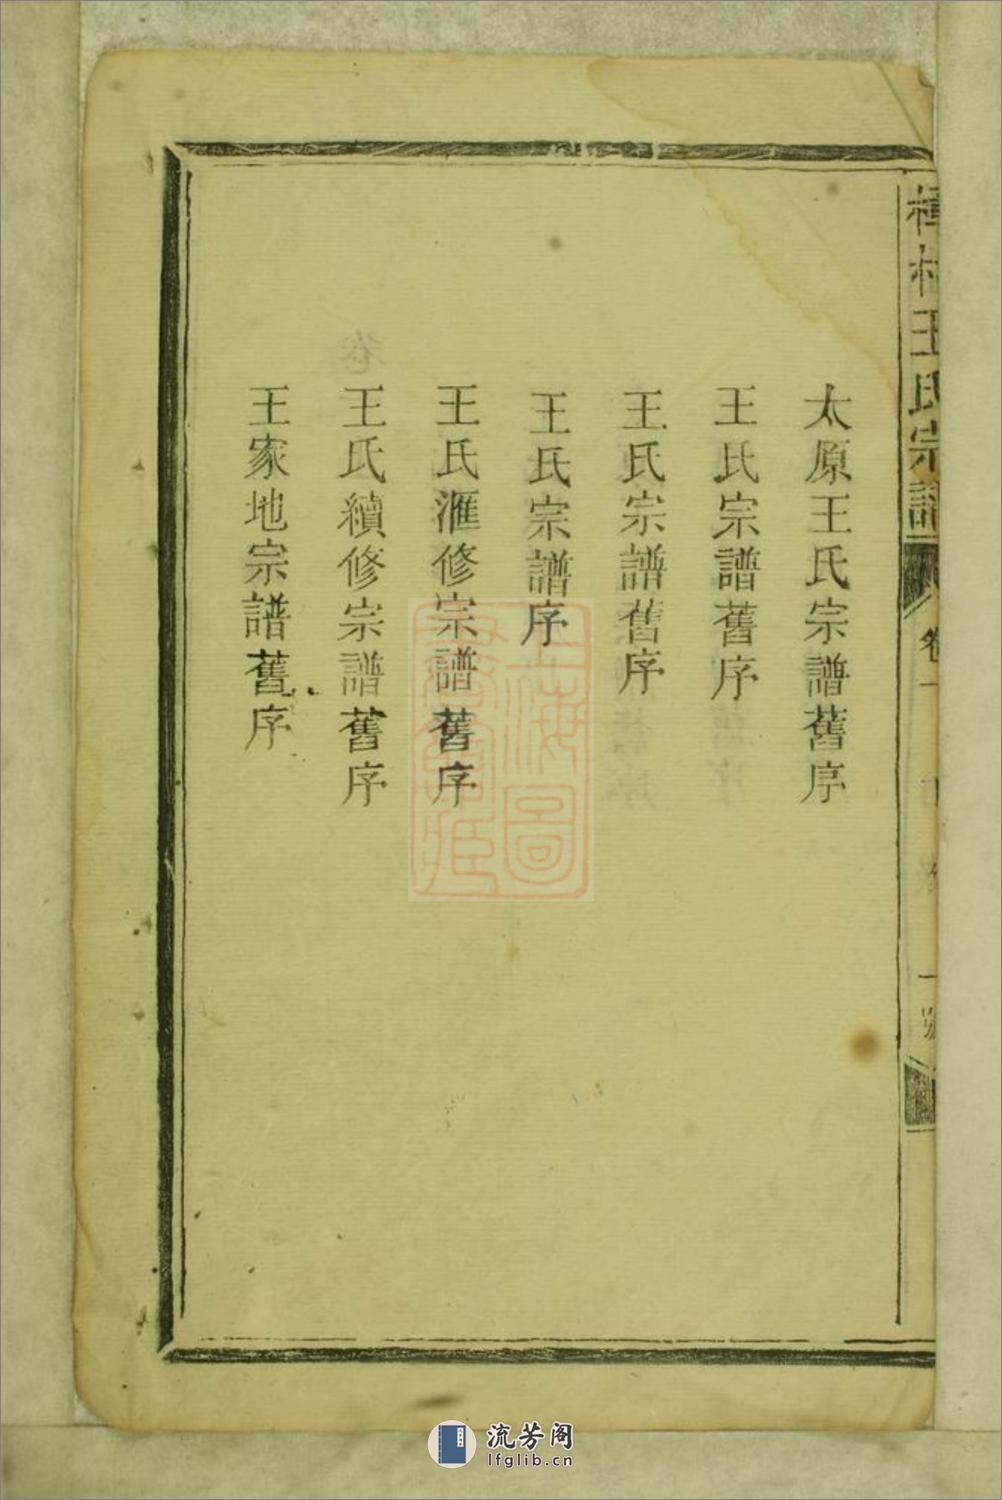 太原王氏宗譜舊序
王氏宗譜舊序
王氏宗譜舊序
王氏宗譜序
王氏滙修宗譜舊序
王氏續修宗譜舊序
王家地宗譜舊序
王氏宗譜
卷一
一
上海圖
流芳阁
lfglib.cn